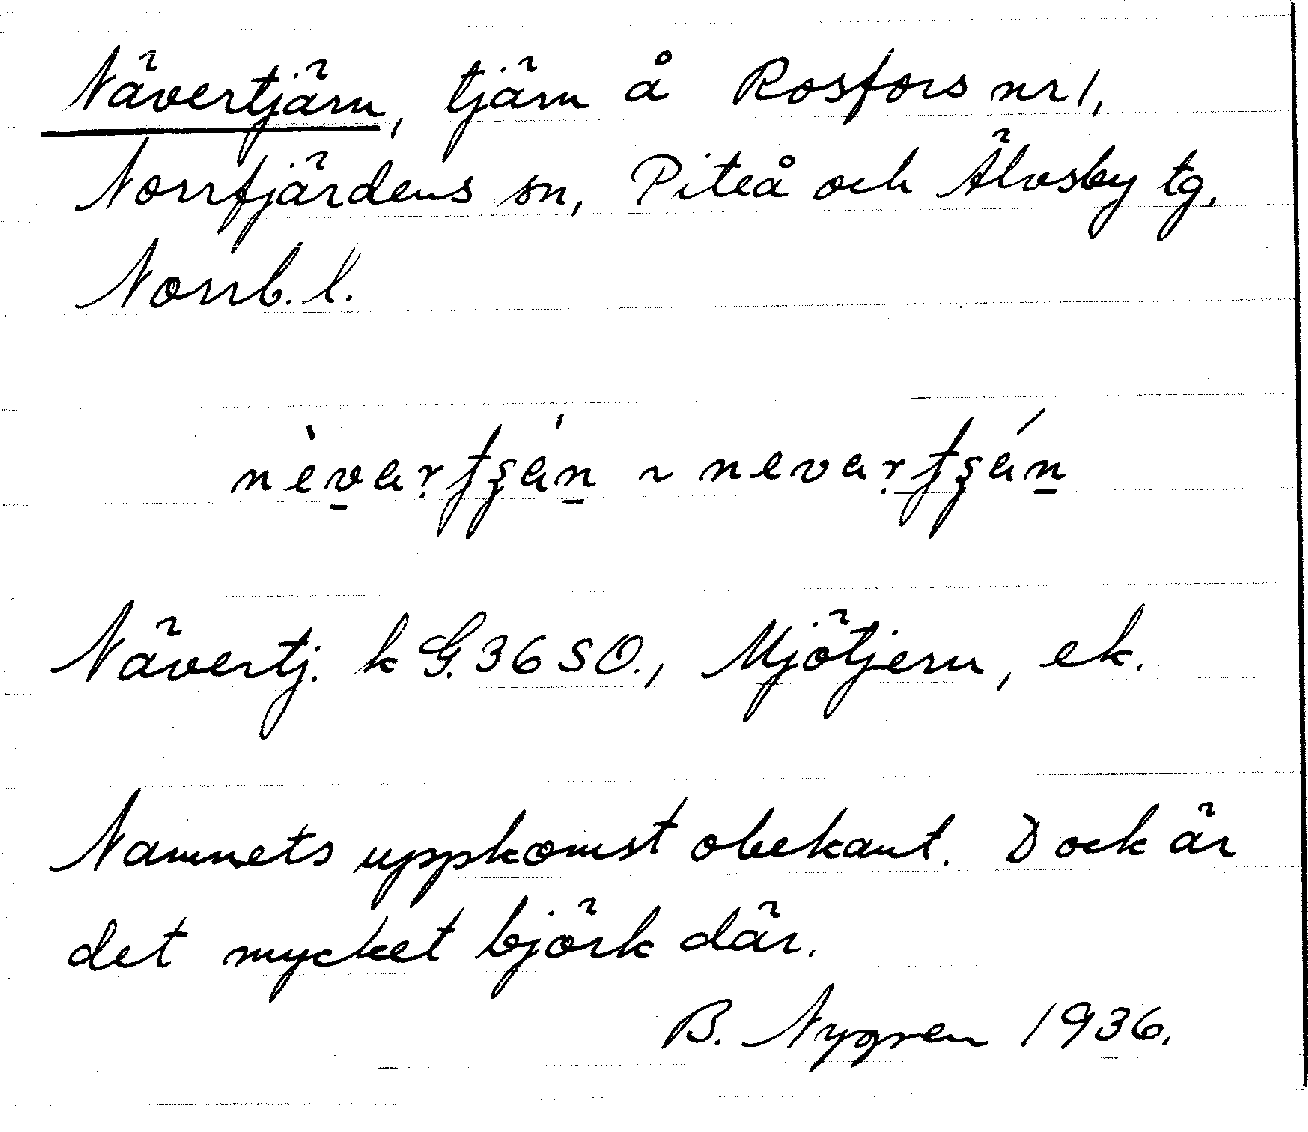 Nävertjärn, tjärn å Rosfors nr 1,
Norrfjärdens sn, Piteå och Älvsby tg,
Norrb. l.
Nävertj. k G. 36 SO., Mjötjern, ek.
Namnets uppkomst obekant. Dock är
det mycket björk där.
B. Nygren 1936.